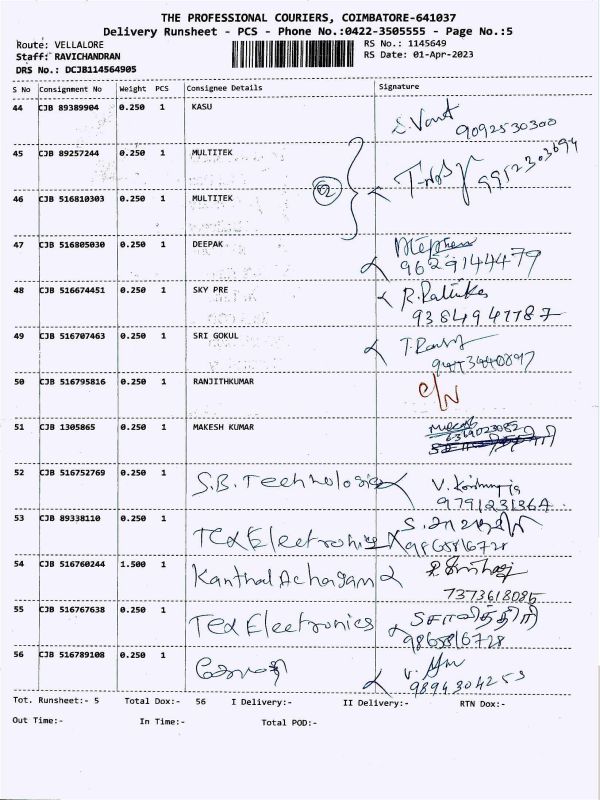 THE PROFESSIONAL COURIERS, COIMBATORE-641037
Delivery Runsheet - PCS - Phone No.:0422-3505555 - Page No.:5
Route: VELLALORE RS No.: 1145649
Staff: RAVICHANDRAN RS Date: 01-Apr-2023
DRS No.: DCJB114564905
S No Consignment No Weight PCS Consignee Details Signature
44 CJB 89389904 0.250 1 KASU
9092530300
45 CJB 89257244 0.250 1 MULTITEK
2
46 CJB 516810303 0.250 1 MULTITEK
47 CJB 516805030 0.250 1 DEEPAK Stephen
9629144479
48 CJB 516674451 0.250 1 SKY PRE
9384941787
49 CJB 516707463 0.250 1 SRI GOKUL
50 CJB 516795816 0.250 1 RANJITHKUMAR C/N
51 CJB 1305865 0.250 1 MAKESH KUMAR
52 CJB 516752769 0.250 1 S.B. Technologies
53 CJB 89338110 0.250 1 Tex Electronics
9865816728
54 CJB 516760244 1.500 1 Kanthal Achagan
7373618085
55 CJB 516767638 0.250 1 Tex Electronics சாவித்திரி
9865816728
56 CJB 516789108 0.250 1
9894304253
Tot. Runsheet:- 5 Total Dox:- 56 I Delivery:- II Delivery:- RTN Dox:-
Out Time:- In Time:- Total POD:-